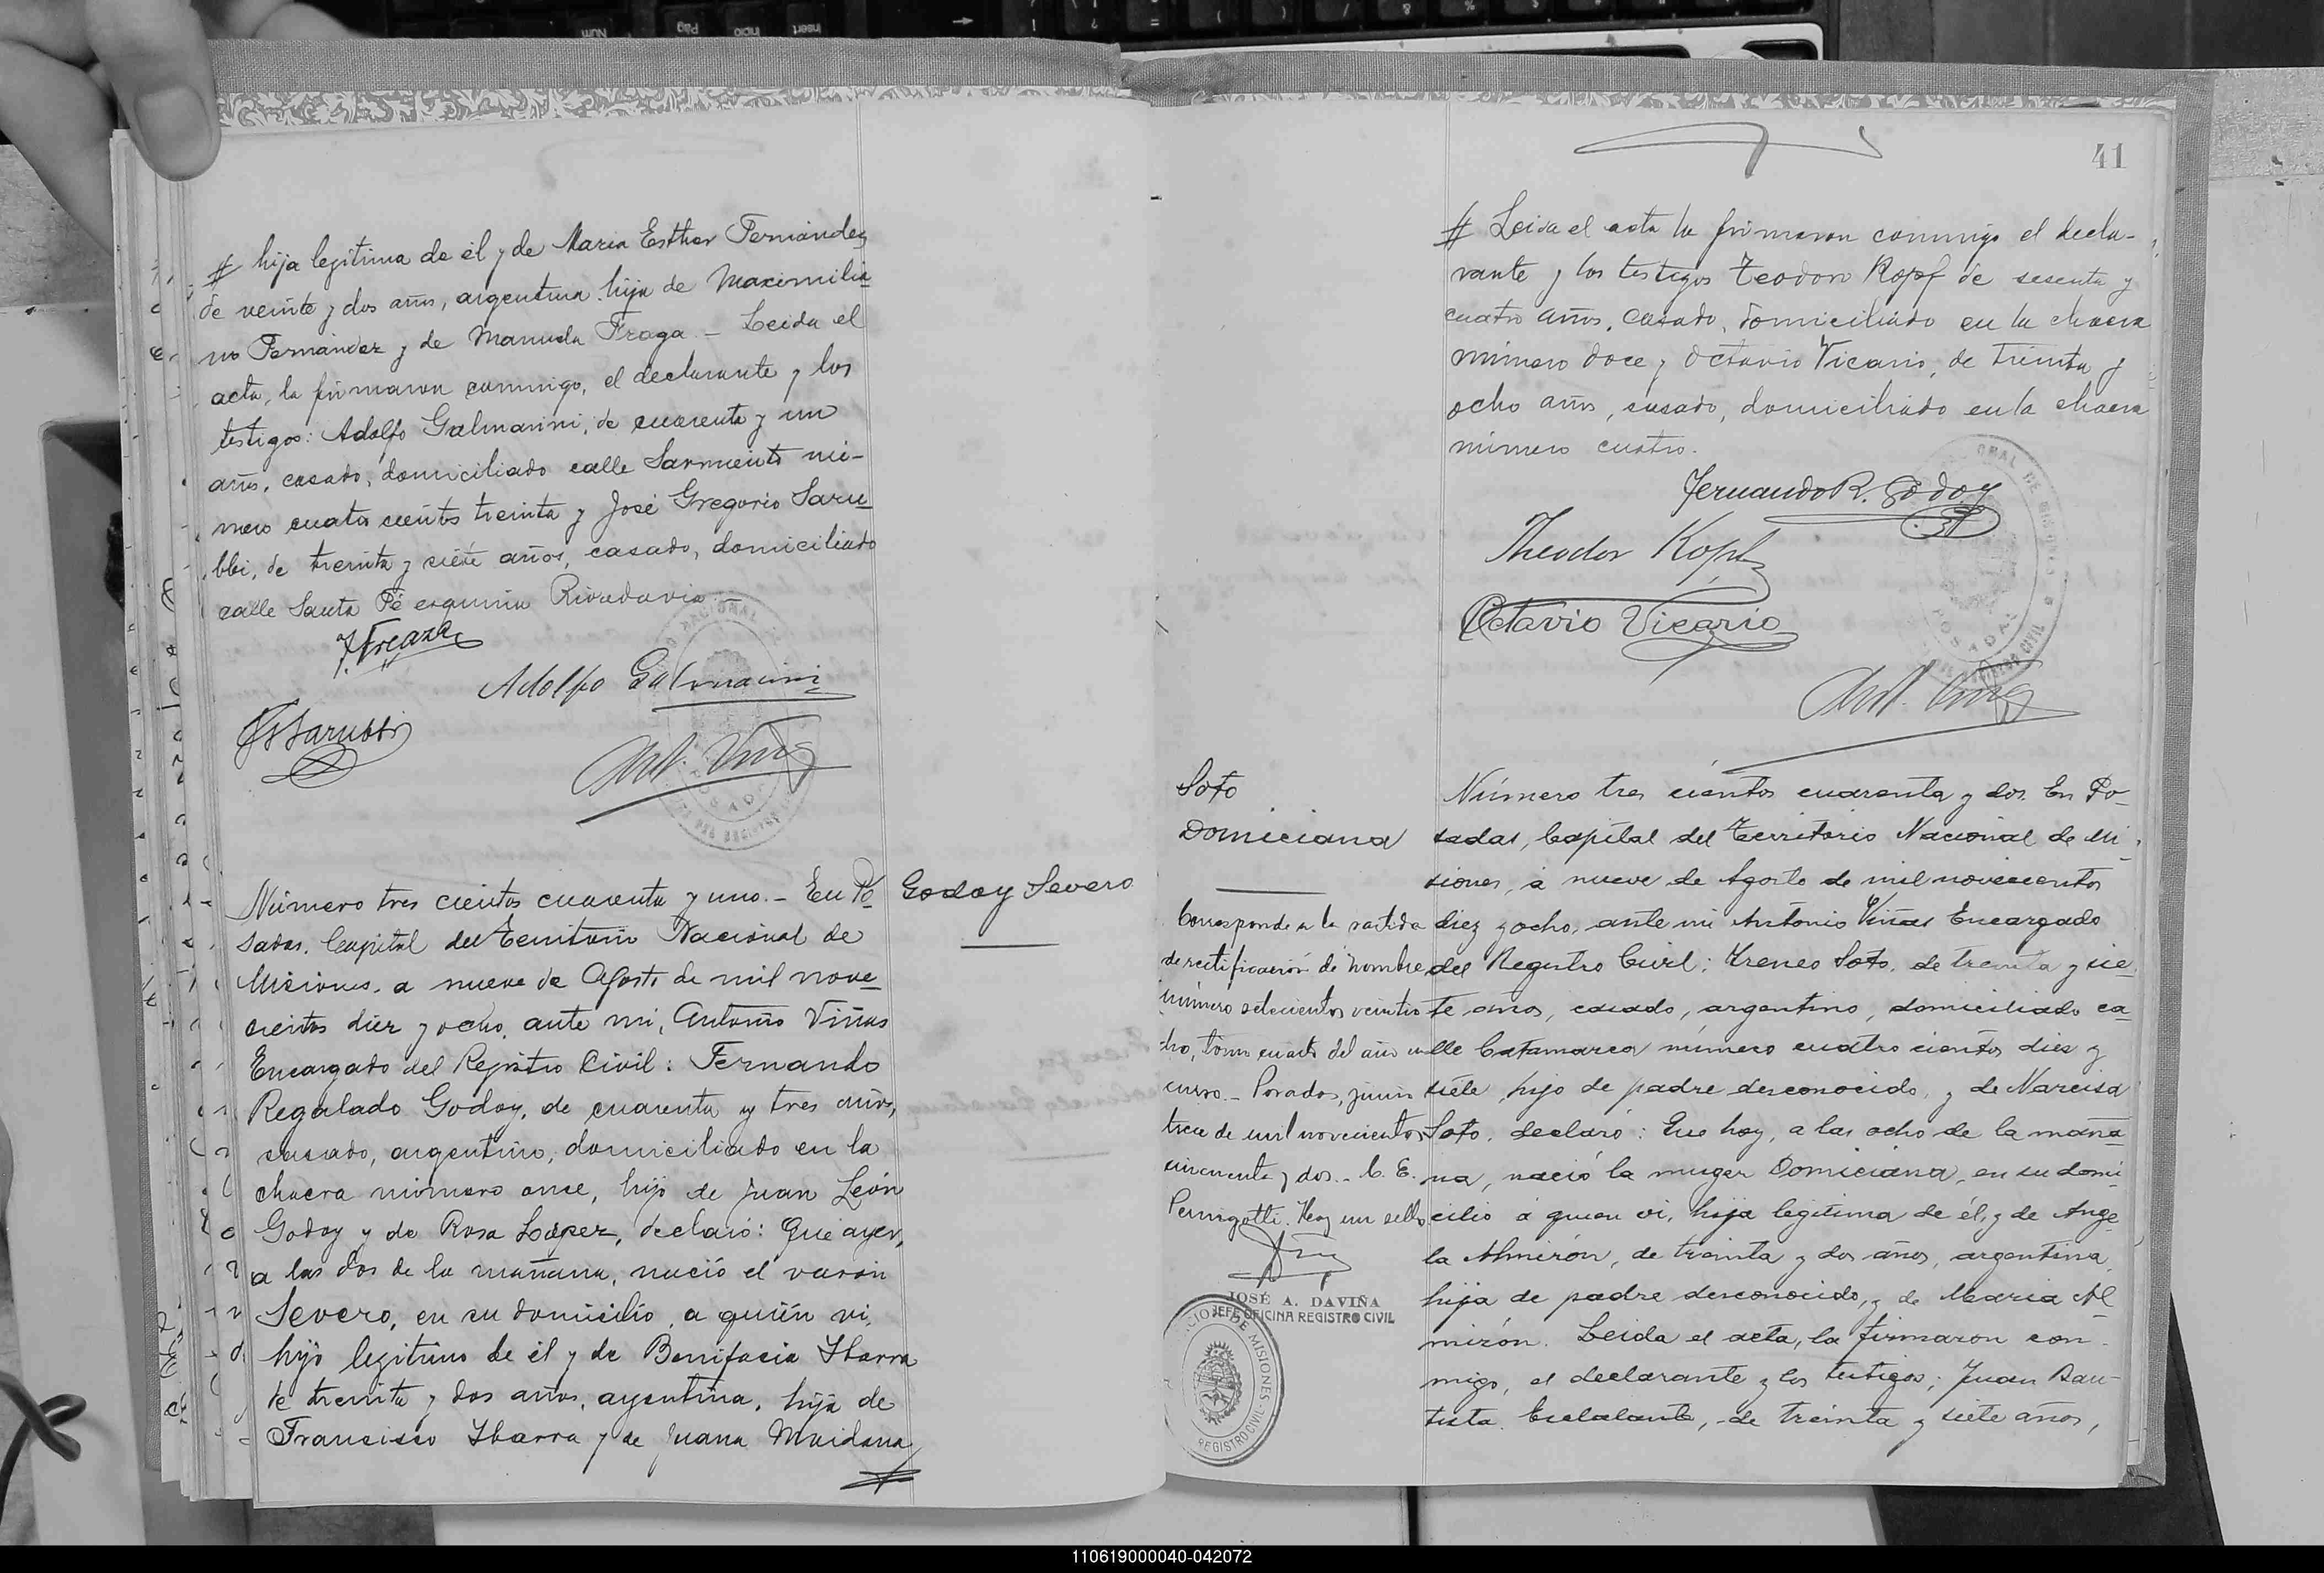 # hija legitima de él y de Maria Esther Fernández
de veinte y dos años, argentina hija de Maximilia
no Fernández y de Manuela Fraga. – Leida el
acta, la firmaron conmigo, el declarante y los
testigos: Adolfo Galmarini, de cuarenta y un
años, casado, domiciliado calle Sarmiento nú-
mero cuatro cientos treinta y José Gregorio Saru
bbi, de treinta y siete años, casado, domiciliado
calle Santa Fé esquina Rivadavia. –
Adolfo Galmarini
Número tres cientos cuarenta y uno. – En Po
sadas, Capital del Territorio Nacional de
Misiones, a nueve de Agosto de mil nove
cientos diez y ocho, ante mi, Antonio Viñas
Encargado del Registro Civil: Fernando
Regalado Godoy, de cuarenta y tres años,
casado, argentino, domiciliado en la
chacra número once, hijo de Juan León
Godoy y de Rosa López, declaró: Que ayer,
a las dos de la mañana, nació el varón
Severo, en su domicilio, a quién vi,
hijo legitimo de él y de Bonifacia Ybarra
de treinta y dos años, argentina, hija de
Francisco Ybarra y de Juana Maidana
#
Godoy Severo
41
# Leida el acta la firmaron conmigo el decla-
rante y los testigos Teodoro Kopf de sesenta y
cuatro años, casado, domiciliado en la chacra
número doce y Octavio Vicario, de treinta y
ocho años, casado, domiciliado en la chacra
número cuatro.
Fernando R. Godoy
Theodor Kopf
Octavio Vicario
Soto
Domiciana
Corresponde a la partida
de rectificación de nombre
número setecientos veintio
cho, tomo cuarto del año en
curso. – Posadas, junio
trece de mil novecientos
cincuenta y dos. – C. E.
Pernigotti. Hay un sello
JOSÉ A. DAVIÑA
JEFE OFICINA REGISTRO CIVIL
MISIONES
REGISTRO CIVIL
Número tres cientos cuarenta y dos. En Po-
sadas, Capital del Territorio Nacional de Mi-
siones, á nueve de Agosto de mil novecientos
diez y ocho, ante mi Antonio Viñas Encargado
del Registro Civil: Yreneo Soto, de treinta y sie
te años, casado, argentino, domiciliado ca
lle Catamarca número cuatro cientos diez y
siete, hijo de padre desconocido, y de Narcisa
Soto, declaró: Que hoy, a las ocho de la maña
na, nació la muger Domiciana, en su domi
cilio á quien vi, hija legitima de él, y de Ange
la Almirón, de treinta y dos años, argentina,
hija de padre desconocido, y de Maria Al
mirón. Leida el acta, la firmaron con-
migo, el declarante y los testigos; Juan Bau-
tista Escalante, de treinta y siete años,
110619000040-042072